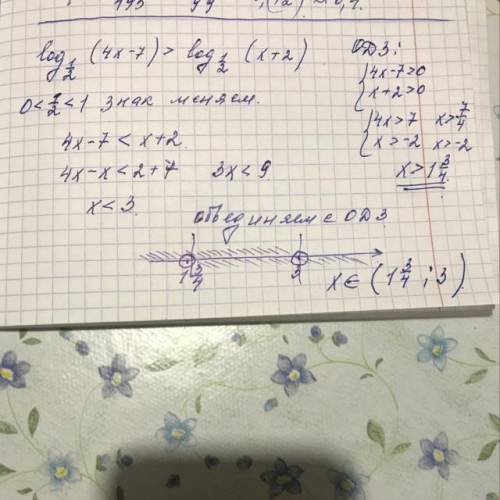 log_{1/2} (4x-7) > log_{1/2} (x+2)
0 < 1/2 < 1 знак меняем.
4x-7 < x+2
4x-x < 2+7 3x < 9
x < 3.
ОДЗ:
{4x-7>0
{x+2>0
{4x>7 x>7/4
{x>-2 x>-2
x > 1 3/4
объединяем с ОДЗ
1 3/4 3
x ∈ (1 3/4 ; 3)